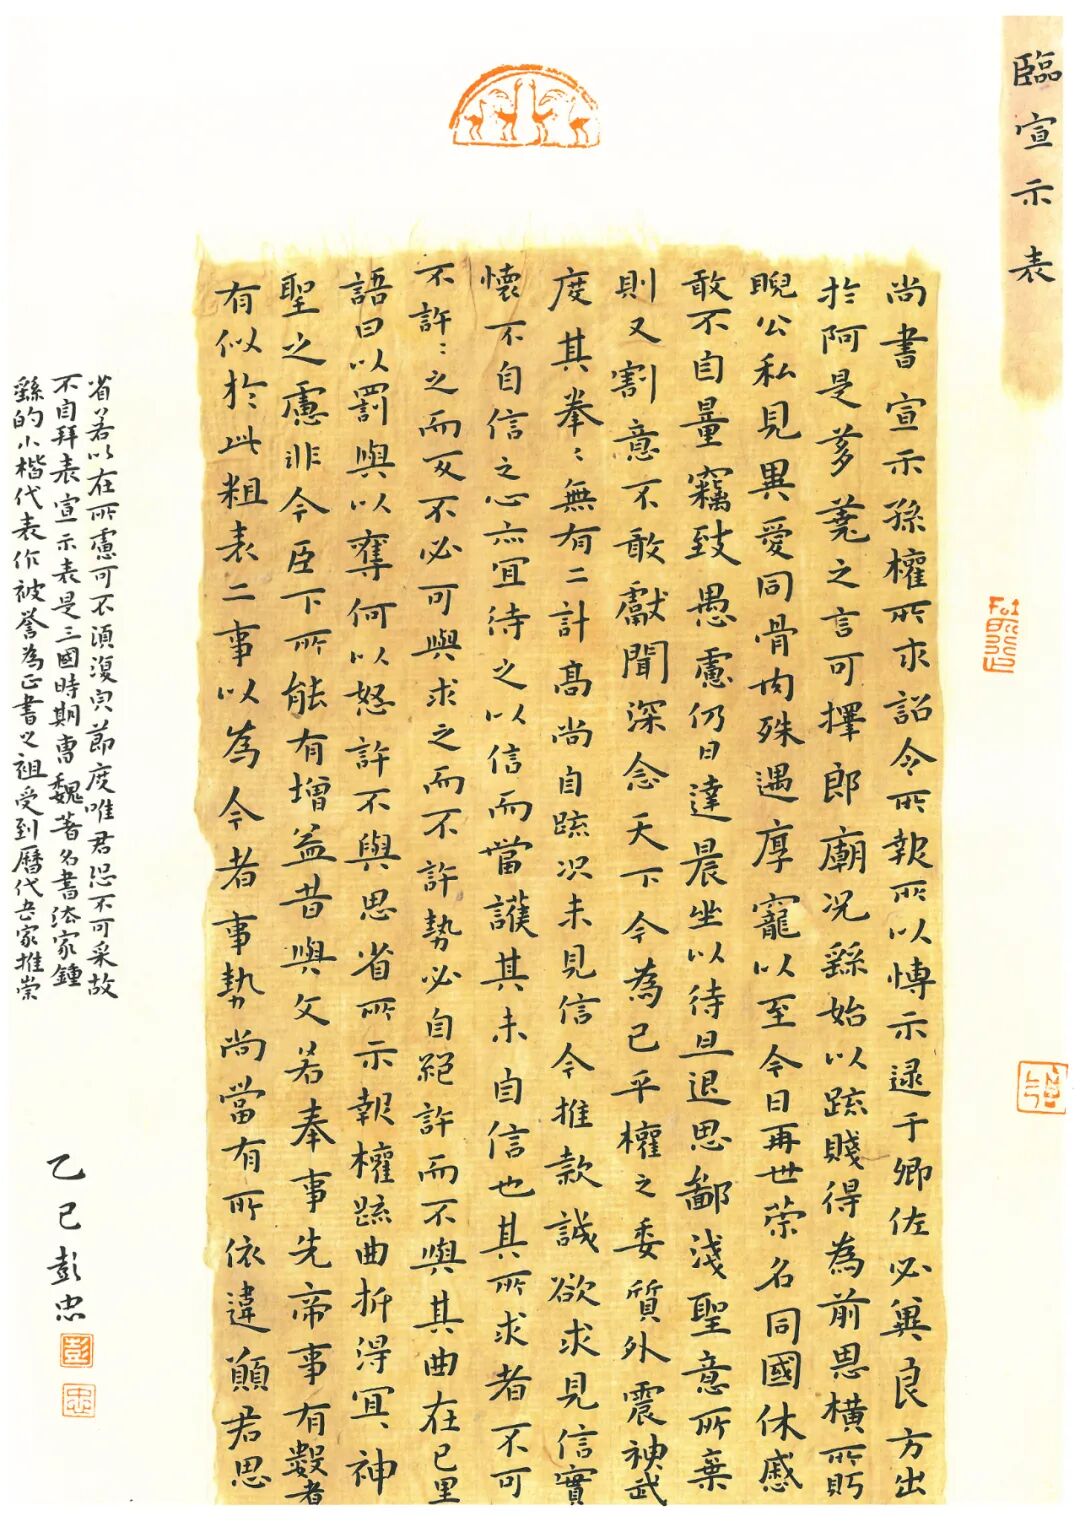 臨宣示表
尚書宣示孫權所求詔令所報所以博示逮于卿佐必冀良方出
於阿是芻蕘之言可擇郎廟況繇始以疏賤得為前恩橫所眄
睨公私見異愛同骨肉殊遇厚寵以至今日再世榮名同國休慼
敢不自量竊致愚慮仍日達晨坐以待旦退思鄙淺聖意所棄
則又割意不敢獻聞深念天下今為已平權之委質外震神武
度其拳〻無有二計高尚自疏況未見信今推款誠欲求見信實
懷不自信之心亦宜待之以信而當護其未自信也其所求者不可
不許〻之而反不必可與求之而不許勢必自絕許而不與其曲在己里
語曰以罰與以奪何以怒許不與思省所示報權疏曲折得宜神
聖之慮非今臣下所能有增益昔與文若奉事先帝事有數者
有似於此粗表二事以為今者事勢尚當有所依違願君思
省若以在所慮可不須復穴節度唯君恐不可采故
不自拜表宣示表是三國時期曹魏著名書法家鍾
繇的小楷代表作被譽為正書之祖受到曆代書家推崇
乙巳彭忠
彭
忠